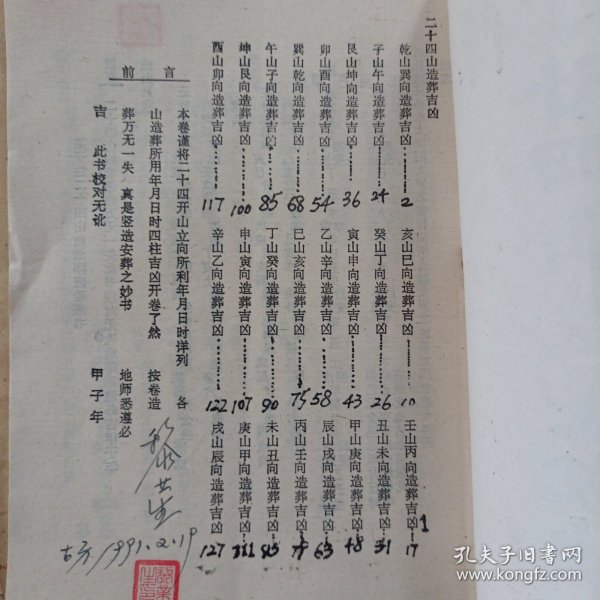 二十四山造葬吉凶
乾山巽向造葬吉凶………2
亥山巳向造葬吉凶………10
壬山丙向造葬吉凶…17
子山午向造葬吉凶………24
癸山丁向造葬吉凶………26
丑山未向造葬吉凶…31
艮山坤向造葬吉凶………36
寅山申向造葬吉凶………43
甲山庚向造葬吉凶…48
卯山酉向造葬吉凶………54
乙山辛向造葬吉凶………58
辰山戌向造葬吉凶…63
巽山乾向造葬吉凶………68
巳山亥向造葬吉凶………75
丙山壬向造葬吉凶…78
午山子向造葬吉凶………85
丁山癸向造葬吉凶………90
未山丑向造葬吉凶…95
坤山艮向造葬吉凶………100
申山寅向造葬吉凶………107
庚山甲向造葬吉凶…111
酉山卯向造葬吉凶………117
辛山乙向造葬吉凶………122
戌山辰向造葬吉凶…127
前言
本卷谨将二十四开山立向所利年月日时详列 各
山造葬所用年月日时四柱吉凶开卷了然 按卷造
葬万无一失 真是竖造安葬之妙书 地师悉遵必
吉 此书校对无讹 甲子年
1991.2.19
孔夫子旧书网
www.kongfz.com